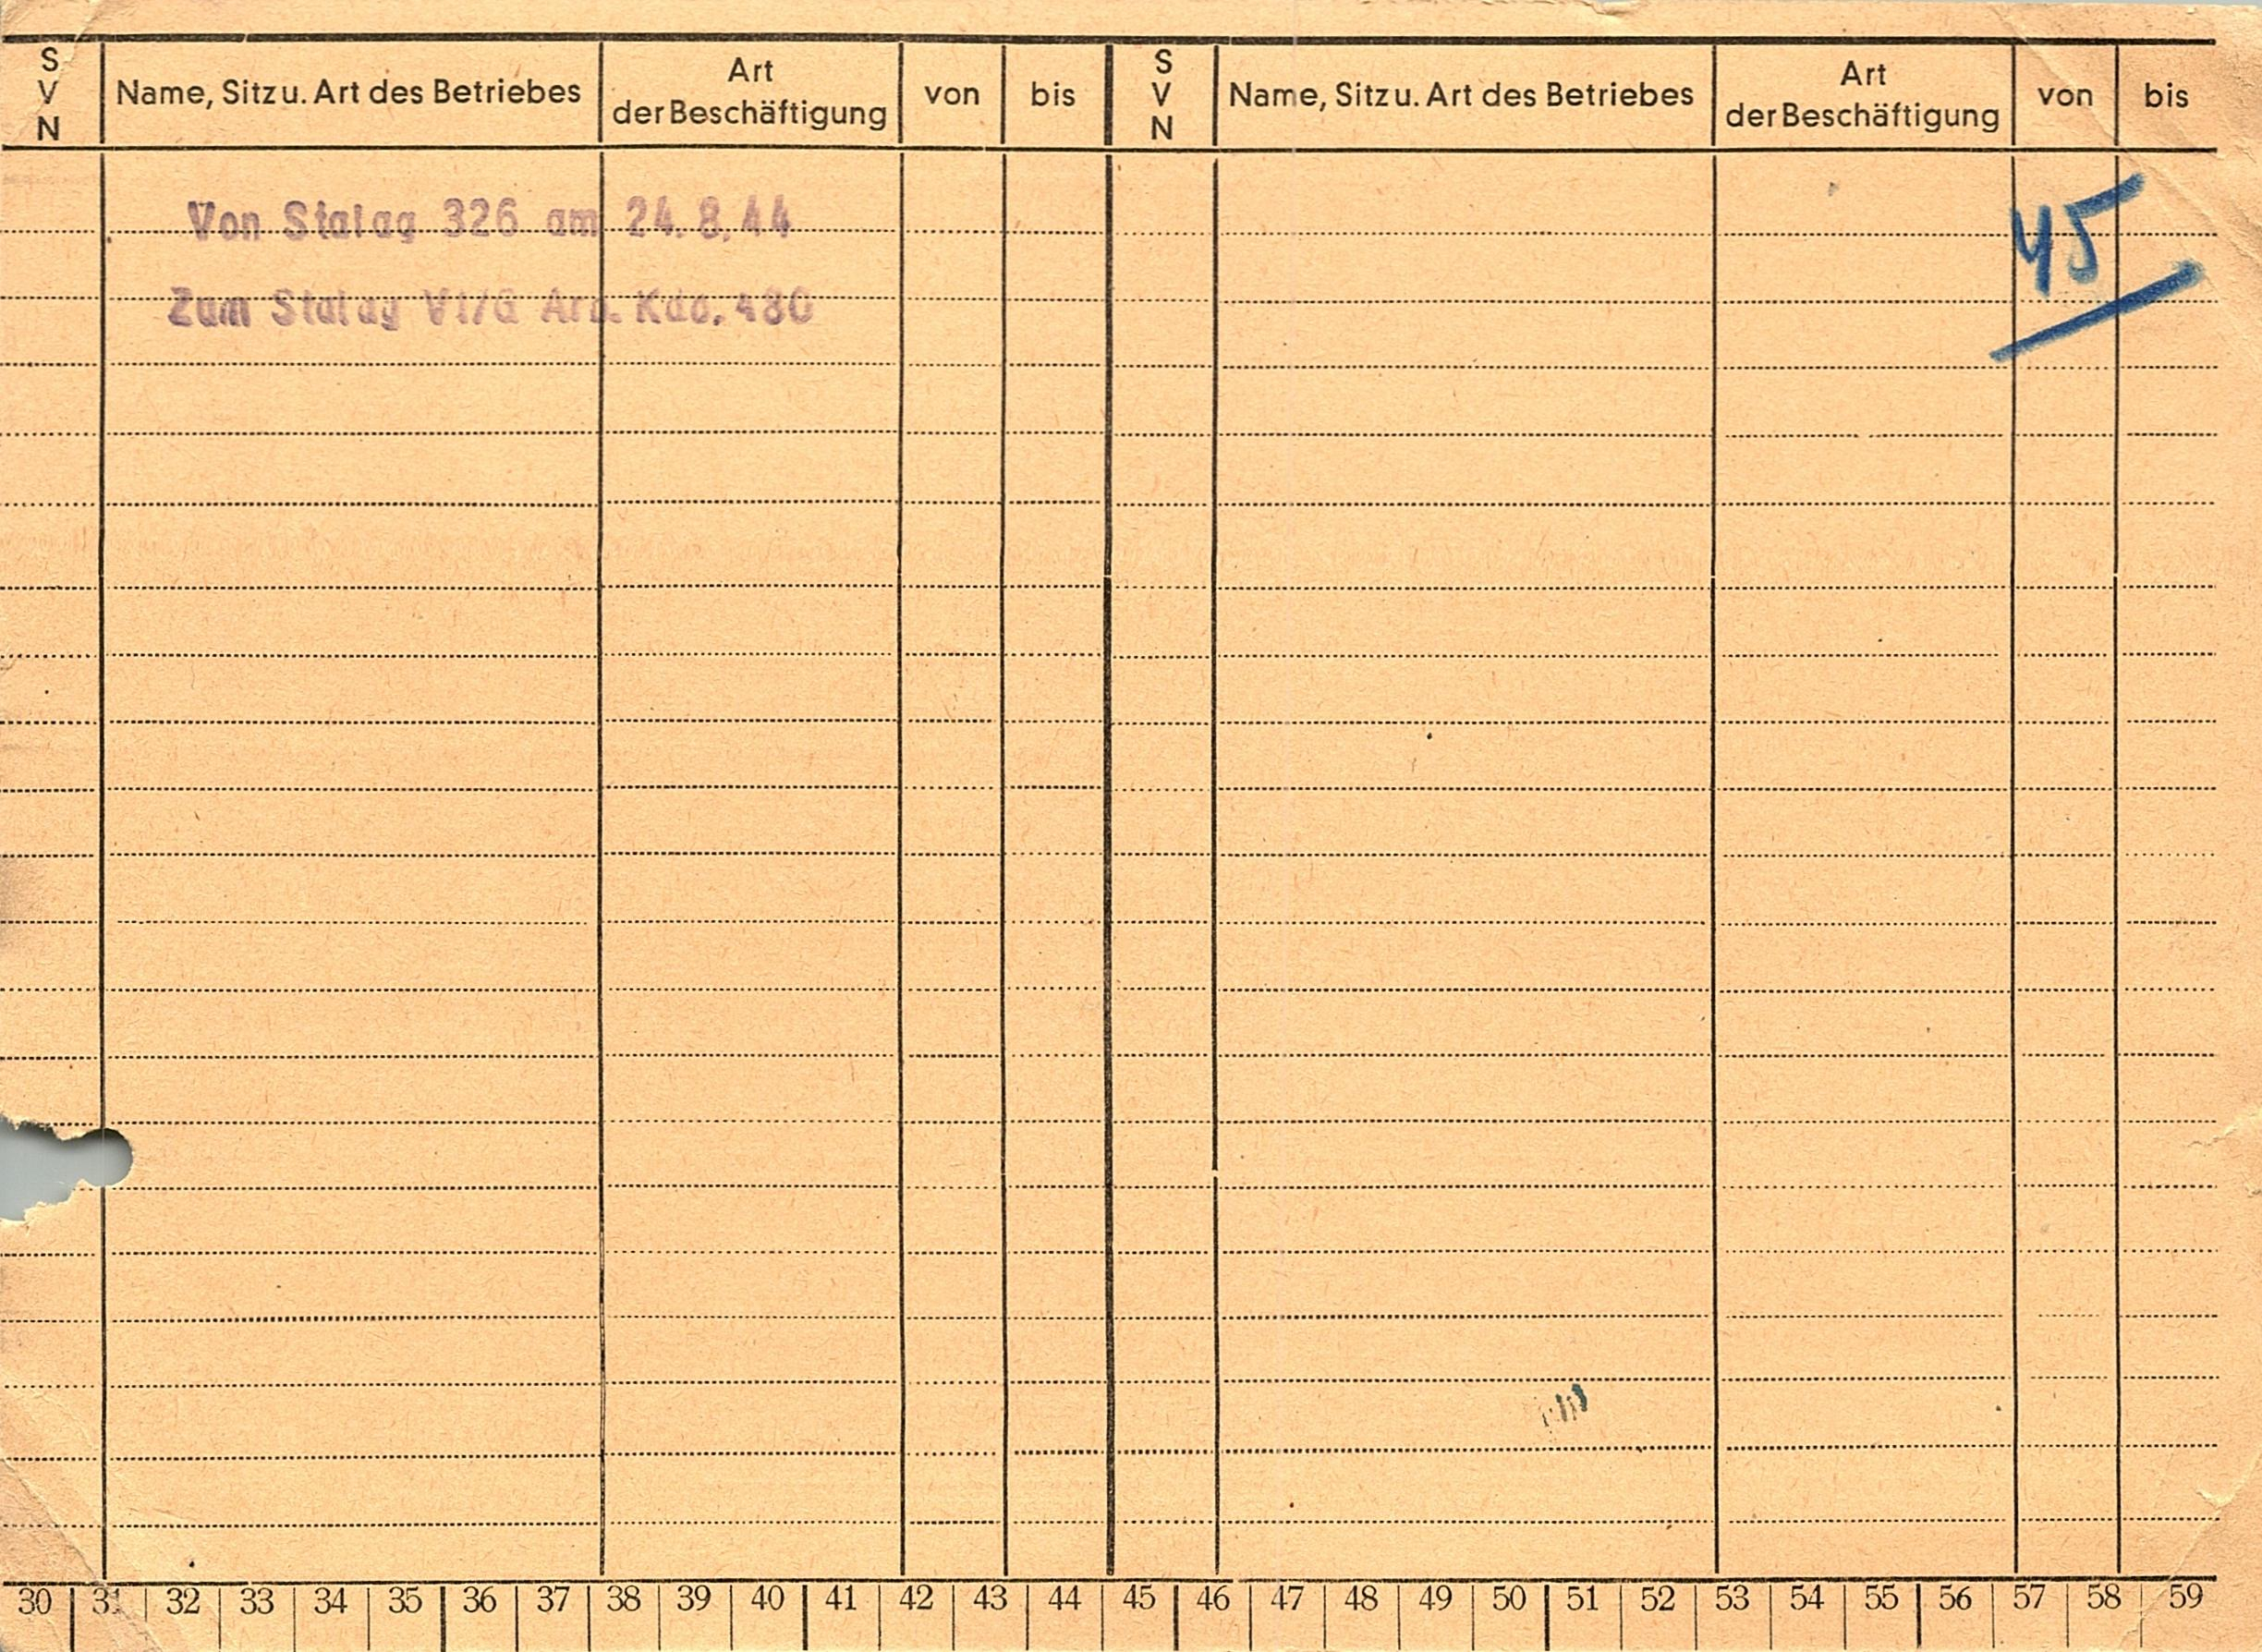 S V N | Name, Sitz u. Art des Betriebes | Art der Beschäftigung | von | bis | S V N | Name, Sitz u. Art des Betriebes | Art der Beschäftigung | von | bis
Von Stalag 326 am 24. 8. 44
45
Zum Stalag VI/G Arb. Kdo. 480
30 31 32 33 34 35 36 37 38 39 40 41 42 43 44 45 46 47 48 49 50 51 52 53 54 55 56 57 58 59